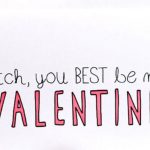 tch, you BEST be m
VALENTIN